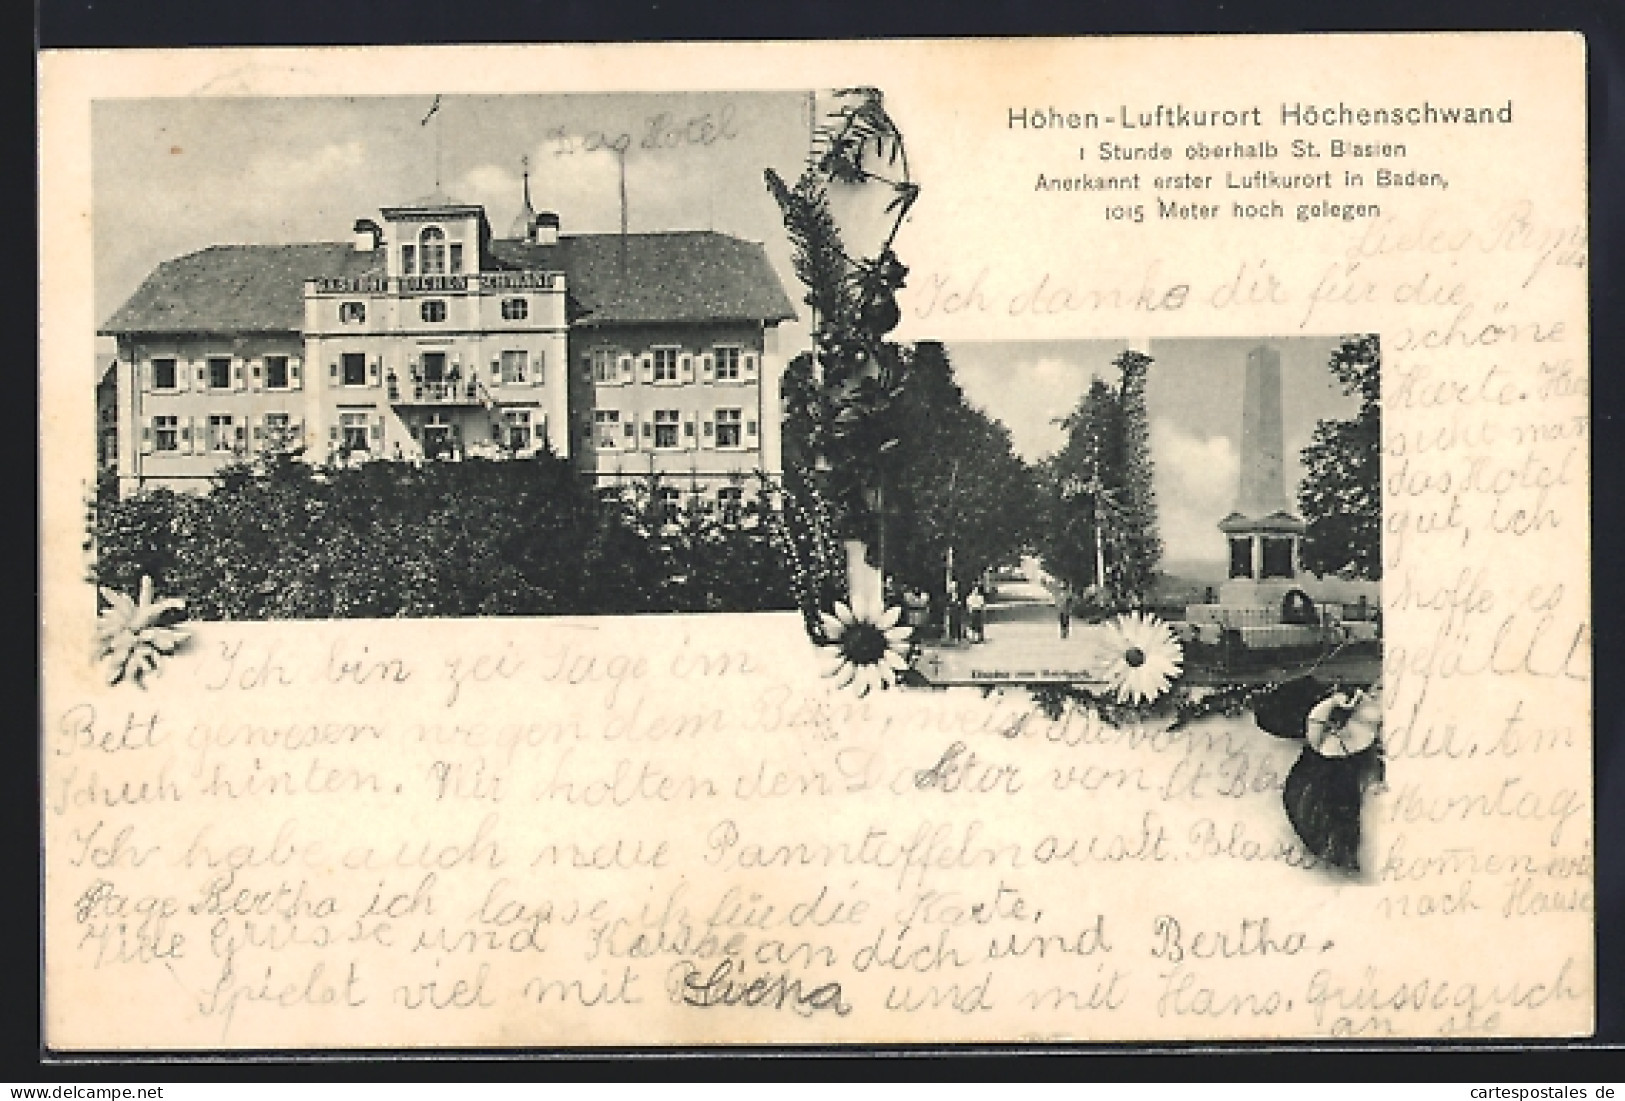 Höhen-Luftkurort Höchenschwand
1 Stunde oberhalb St. Blasien
Anerkannt erster Luftkurort in Baden,
1015 Meter hoch gelegen
Das Hotel
GASTHOF HÖCHENSCHWAND
Liebes
Ich danke dir für die
schöne
Karte. Hier
sieht man
das Hotel
gut, ich
hoffe es
gefällt
dir. Am
Montag
komen wir
nach Hause
Ich bin zei Tage im
Bett gewesen wegen dem
Schuh hinten. Wir holten den Doktor von St Bla
Ich habe auch neue Panntoffeln aus St. Blasien
Sage Bertha ich lasse ih für die Karte.
Viele Grüsse und Küsse an dich und Bertha.
Spielst viel mit und mit Hans. Grüsse auch
an sie
cartespostales de